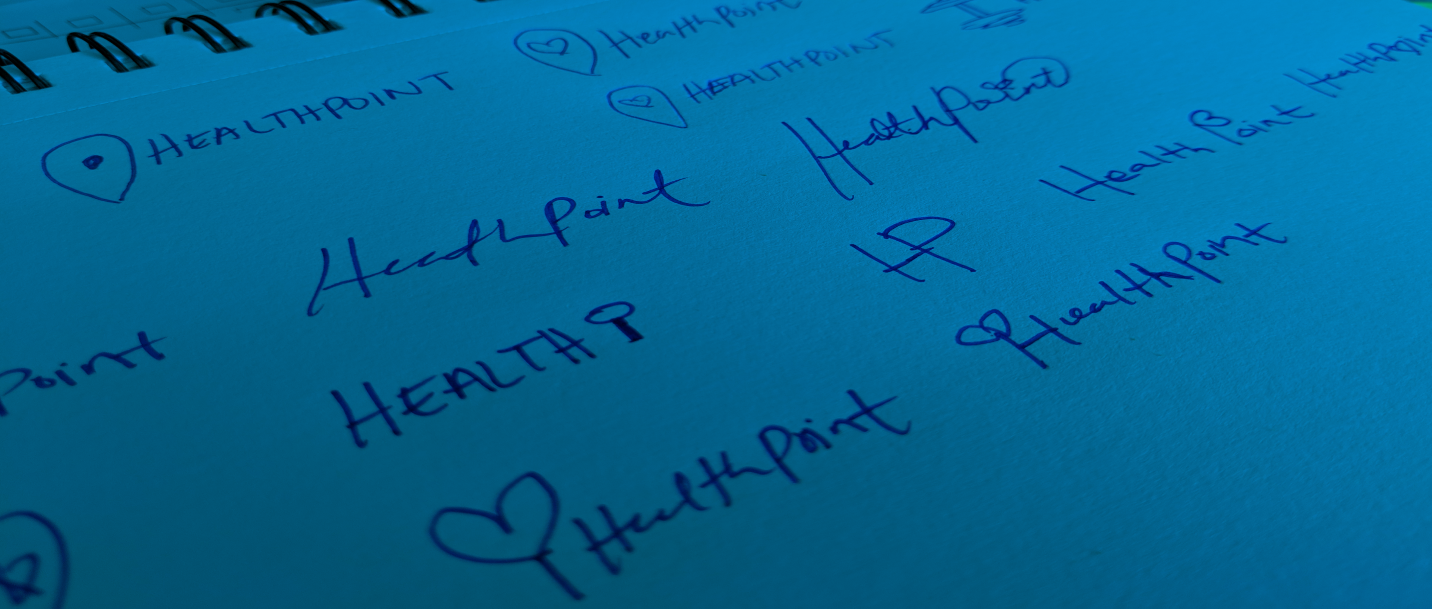 HealthPoint
HEALTHPOINT
HEALTHPOINT
HealthPoint
HealthPoint
HealthPoint
Health Point
HP
HealthPoint
Point
HEALTH
HealthPoint